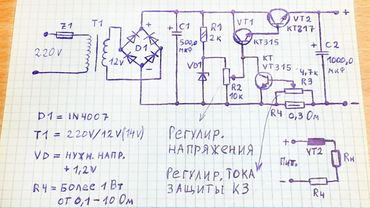 Z1 T1 C1 R1 VT1 VT2
220V 12V D1 500,0 2K КТ315 КТ817
мкф
КТ C2
VT315 1000,0
VD1 R2 4,7к мкф
10к R3
R4 0,3 Ом
D1 = IN4007
T1 = 220V/12V(14V)
VD = нужн. напр.
+1,2V
R4 = Более 1 Вт
от 0,1-10 Ом
Регулир.
напряжения
Регулир. тока
защиты КЗ
Пит. VT2 Rн
R4